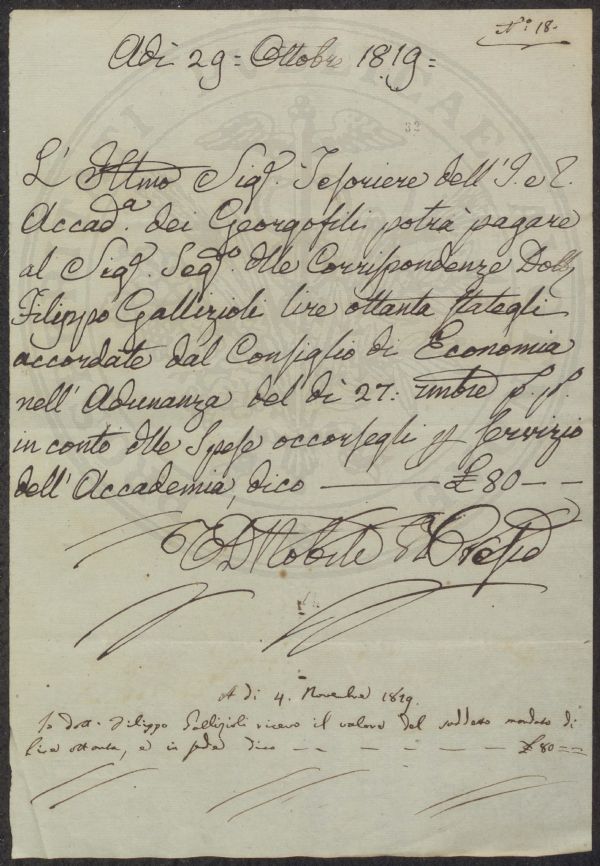 N.° 18.
Adì 29 = Ottobre 1819 =
32
L' Illmo Sigr. Tesoriere dell' I. e R.
Accad.a dei Georgofili potrà pagare
al Sigr. Segr.o delle Corrispondenze Dott.
Filippo Gallizioli lire ottanta stategli
accordate dal Consiglio di Economia
nell' Adunanza del dì 27. 7mbre p. p.
in conto delle Spese occorsegli p servizio
dell' Accademia, dico ——— £ 80 — —
A di 4. Novembre 1819.
Io Dott. Filippo Gallizioli ricevo il valore del suddetto mandato di
lire ottanta, e in fede dico — — — — — — £ 80 = =